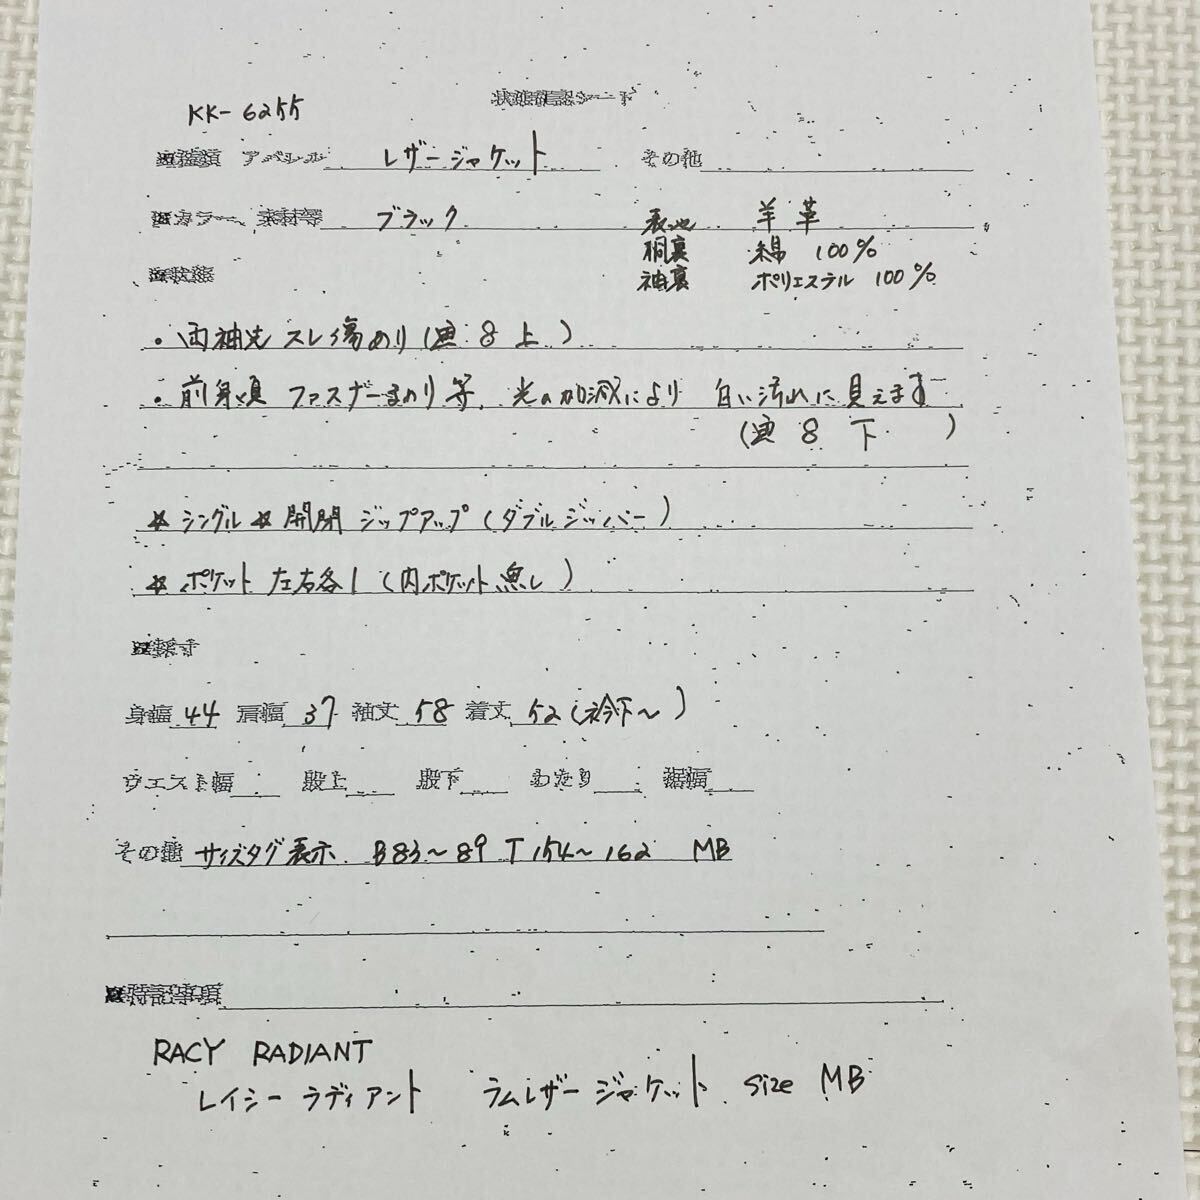 状態確認シート
KK-6255
■種類 アパレル レザージャケット その他
■カラー、素材等 ブラック 表地 羊革
胴裏 綿 100%
袖裏 ポリエステル 100%
■状態
・両袖先 スレ傷あり(画 8 上)
・前身頃 ファスナーまわり等、光の加減により 白い汚れに見えます
(画 8 下 )
☆シングル ☆開閉 ジップアップ(ダブルジッパー)
☆ポケット 左右各1(内ポケット無し)
■採寸
身幅 44 肩幅 37 袖丈 58 着丈 52(衿下〜)
ウエスト幅 股上 股下 わたり 裾幅
その他 サイズタグ表示 B83〜89 T154〜162 MB
■特記事項
RACY RADIANT
レイシーラディアント ラムレザージャケット size MB